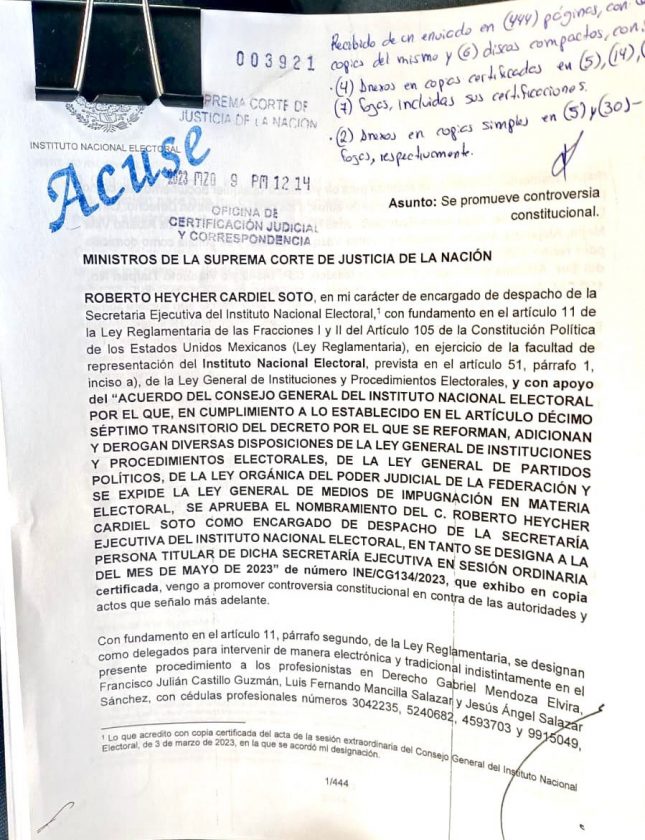 Recibido de un enviado en (444) páginas, con
copias del mismo y (6) discos compactos, con:
003921
·(4) Anexos en copias certificadas en (5), (14), (
(7) fojas, incluidas sus certificaciones.
·(2) Anexos en copias simples en (5) y (30)-
fojas, respectivamente.
SUPREMA CORTE DE
JUSTICIA DE LA NACIÓN
INSTITUTO NACIONAL ELECTORAL
Acuse
2023 MZO 9 PM 12 14
OFICINA DE
CERTIFICACIÓN JUDICIAL
Y CORRESPONDENCIA
Asunto: Se promueve controversia
constitucional.
MINISTROS DE LA SUPREMA CORTE DE JUSTICIA DE LA NACIÓN
ROBERTO HEYCHER CARDIEL SOTO, en mi carácter de encargado de despacho de la
Secretaria Ejecutiva del Instituto Nacional Electoral,¹ con fundamento en el artículo 11 de
la Ley Reglamentaria de las Fracciones I y II del Artículo 105 de la Constitución Política
de los Estados Unidos Mexicanos (Ley Reglamentaria), en ejercicio de la facultad de
representación del Instituto Nacional Electoral, prevista en el artículo 51, párrafo 1,
inciso a), de la Ley General de Instituciones y Procedimientos Electorales, y con apoyo
del "ACUERDO DEL CONSEJO GENERAL DEL INSTITUTO NACIONAL ELECTORAL
POR EL QUE, EN CUMPLIMIENTO A LO ESTABLECIDO EN EL ARTÍCULO DÉCIMO
SÉPTIMO TRANSITORIO DEL DECRETO POR EL QUE SE REFORMAN, ADICIONAN
Y DEROGAN DIVERSAS DISPOSICIONES DE LA LEY GENERAL DE INSTITUCIONES
Y PROCEDIMIENTOS ELECTORALES, DE LA LEY GENERAL DE PARTIDOS
POLÍTICOS, DE LA LEY ORGÁNICA DEL PODER JUDICIAL DE LA FEDERACIÓN Y
SE EXPIDE LA LEY GENERAL DE MEDIOS DE IMPUGNACIÓN EN MATERIA
ELECTORAL, SE APRUEBA EL NOMBRAMIENTO DEL C. ROBERTO HEYCHER
CARDIEL SOTO COMO ENCARGADO DE DESPACHO DE LA SECRETARÍA
EJECUTIVA DEL INSTITUTO NACIONAL ELECTORAL, EN TANTO SE DESIGNA A LA
PERSONA TITULAR DE DICHA SECRETARÍA EJECUTIVA EN SESIÓN ORDINARIA
DEL MES DE MAYO DE 2023" de número INE/CG134/2023, que exhibo en copia
certificada, vengo a promover controversia constitucional en contra de las autoridades y
actos que señalo más adelante.
Con fundamento en el artículo 11, párrafo segundo, de la Ley Reglamentaria, se designan
como delegados para intervenir de manera electrónica y tradicional indistintamente en el
presente procedimiento a los profesionistas en Derecho Gabriel Mendoza Elvira,
Francisco Julián Castillo Guzmán, Luis Fernando Mancilla Salazar y Jesús Ángel Salazar
Sánchez, con cédulas profesionales números 3042235, 5240682, 4593703 y 9915049,
¹ Lo que acredito con copia certificada del acta de la sesión extraordinaria del Consejo General del Instituto Nacional
Electoral, de 3 de marzo de 2023, en la que se acordó mi designación.
1/444